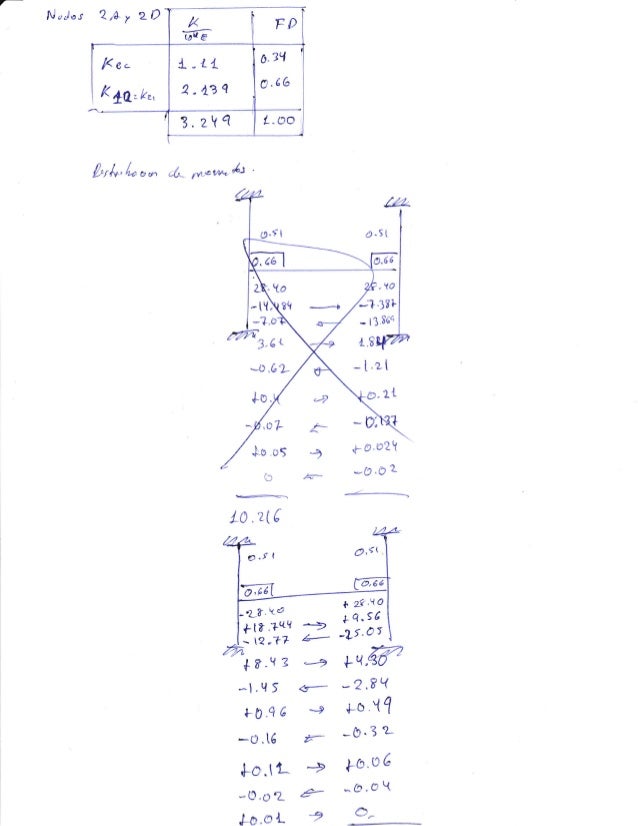 Nudos 2A y 2D
K FD
10⁴E
Kec 1.11 0.34
2.139 0.66
3.249 1.00
Distribucion de momentos.
0.51 0.51
0.66 0.66
28.40 28.40
-14.484 → -7.387
-7.07 ← -13.869
3.61 → 1.84
-0.62 ← -1.21
+0.4 → +0.21
-0.07 ← -0.137
+0.05 → +0.024
0 ← -0.02
10.216
0.51 0.51
0.66 0.66
-28.40 +28.40
+18.744 → +9.56
-12.77 ← -25.05
+8.43 → +4.30
-1.45 ← -2.84
+0.96 → +0.49
-0.16 ← -0.32
+0.11 → +0.06
-0.02 ← -0.04
+0.01 → 0.